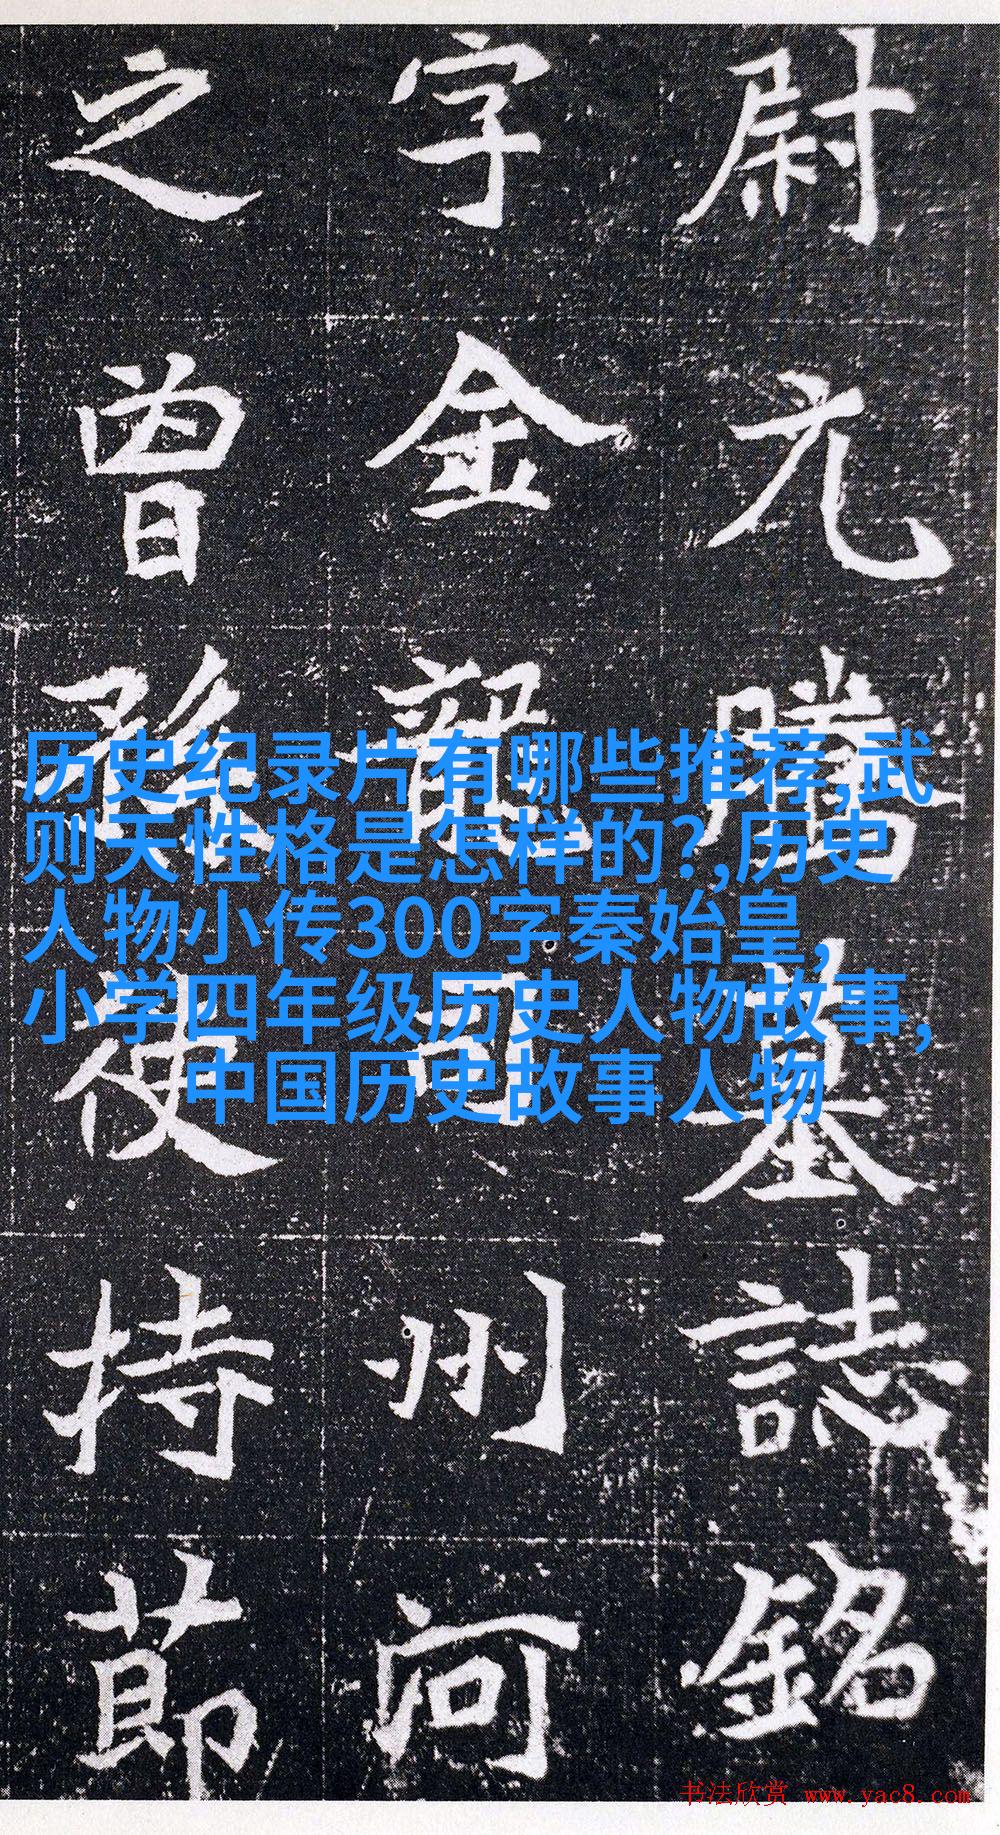 尉元騰墓誌銘
字金龍司州河
之曾孫使持節
历史纪录片有哪些推荐,武
则天性格是怎样的?,历史
人物小传300字秦始皇,
小学四年级历史人物故事,
中国历史故事人物
书法欣赏 www.yac8.com